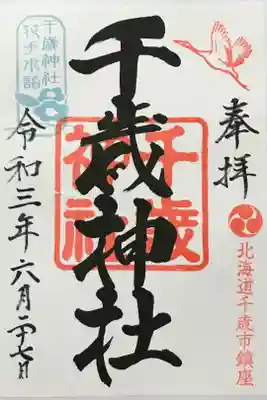 奉拝
北海道千歳市鎮座
千歳神社
千歳
神社
千歳神社
令和三年六月二十七日